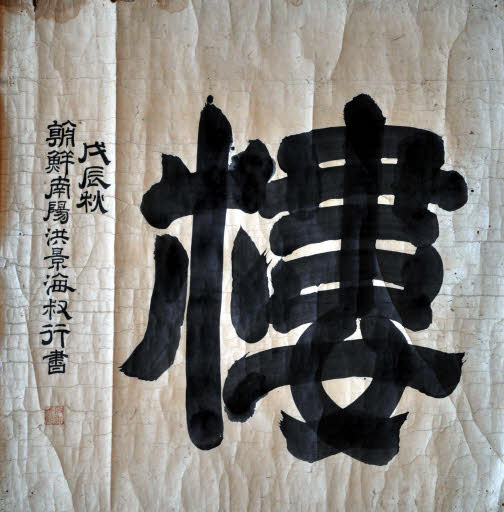 樓
戊辰秋
朝鮮南陽洪景海叔行書